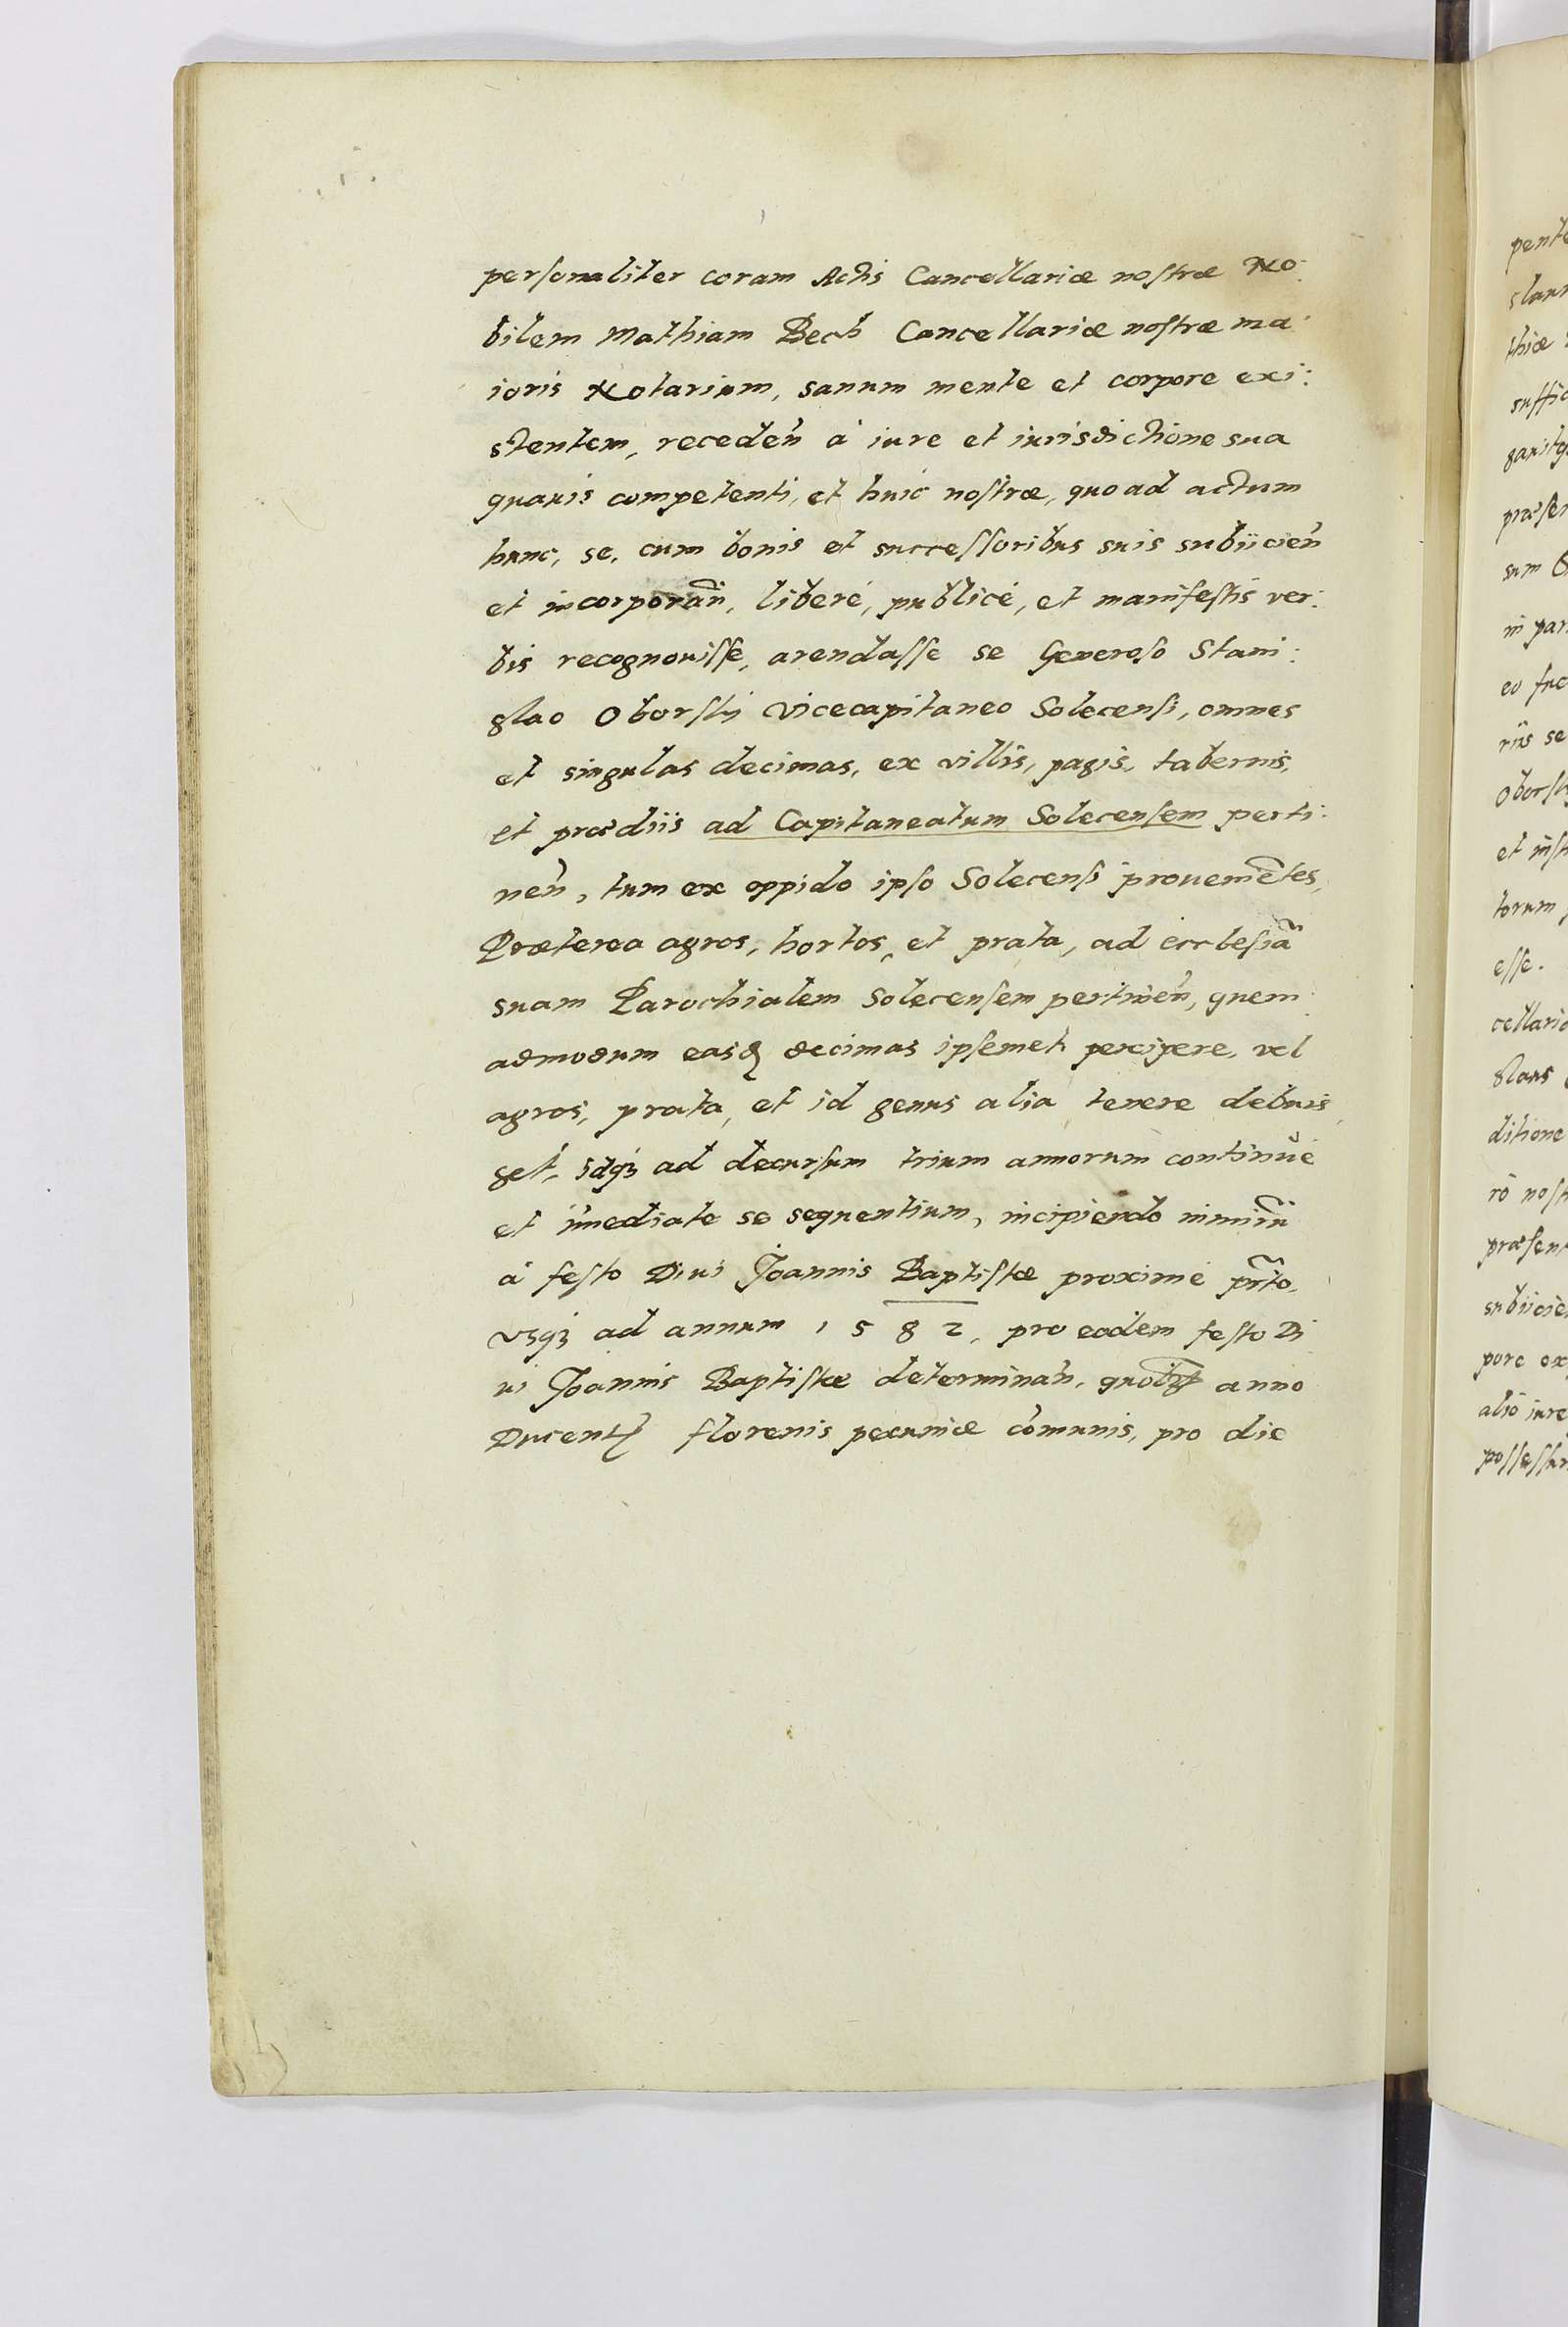 personaliter coram Actis Cancellariæ nostræ No:
bilem Mathiam Bech Cancellariæ nostræ ma:
ioris Notarium, sanum mente et corpore exi:
stentem, receden̄ à iure et iurisdictione sua
quauis competenti, et huic nostræ, quo ad actum
hunc, se, cum bonis et successoribus suis subiicien̄
et incorporan̄, liberè, publicè, et manifestis ver:
bis recognouisse, arendasse se Generoso Stani:
slao Oborski Vicecapitaneo Solecensi, omnes
et singulas decimas, ex villis, pagis, tabernis,
et prædiis ad Capitaneatum Solecensem perti:
nen̄, tum ex oppido ipso Solecensi proueniẽtes,
Præterea agros, hortos, et prata, ad ecclesiã
suam Parochialem Solecensem pertinen̄, quem:
admodum easdꝫ decimas ipsemet percipere, vel
agros, prata, et id genus alia tenere debuis
set, idqꝫ ad decursum trium annorum continuè
et im̄ediate se sequentium, incipiendo nimirũ
à festo Diui Joannis Baptistæ proximè pr̃to,
vsqꝫ ad annum 1582, pro eodem festo Di
ui Joannis Baptistæ determinan̄, quolibet anno
Ducentꝭ florenis pecuniæ com̄unis, pro die
pente
slaum
thiæ
suffic
gauitqꝫ
præsen
sum
in par
eo fuc
riis se
Oborski
et inst
torum
esse.
cellariæ
slaus
ditione
rò nost
præsen
subiicie
pore ex
alio iure
possessur